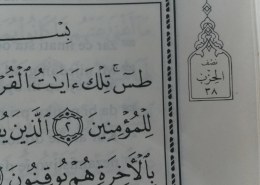 بِسْـ
طسٓ ۚ تِلْكَ ءَايَٰتُ ٱلْقُرْ
لِلْمُؤْمِنِينَ ٢ ٱلَّذِينَ يُـ
بِٱلْءَاخِرَةِ هُمْ يُوقِنُونَ
نصف
الحزب
٣٨